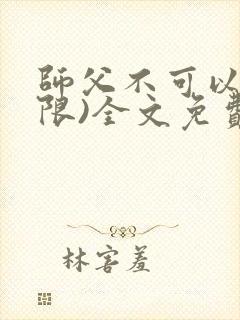 師父不可以
限)全文免費
林害羞